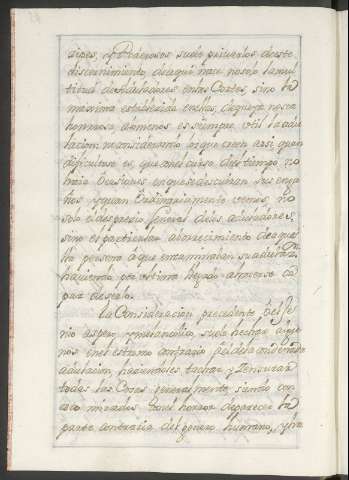 cipes, y Poderosos suele privarles de este
discernimiento, de aqui nace no solo la mul
titud de Aduladores en las Cortes, sino la
maxima establecida en ellas, de que no
hermosa ò menos es siempre util la adu
lacion; no considerando los que creen asi, quan
dificultoso es, que en el curso del tiempo no
haia ocasiones en que se descubran sus enga
ños, y quan ordinariamente vemos, no
solo el desprecio general de los aduladores,
sino el particular aborrecimiento de aque
lla persona à que encaminaban su adulacion
haciendo por ultimo
paz de serlo.
La Consideracion precedente, del Ge
nio aspero y melancolico, suele hechar à algu
nos en el estremo contrario de la condenada
adulacion, haciendoles tachar, y censurar
todas las Cosas generalmente siendo con
esto mirados con el horror de parecer la
parte contraria del genero humano, y sin